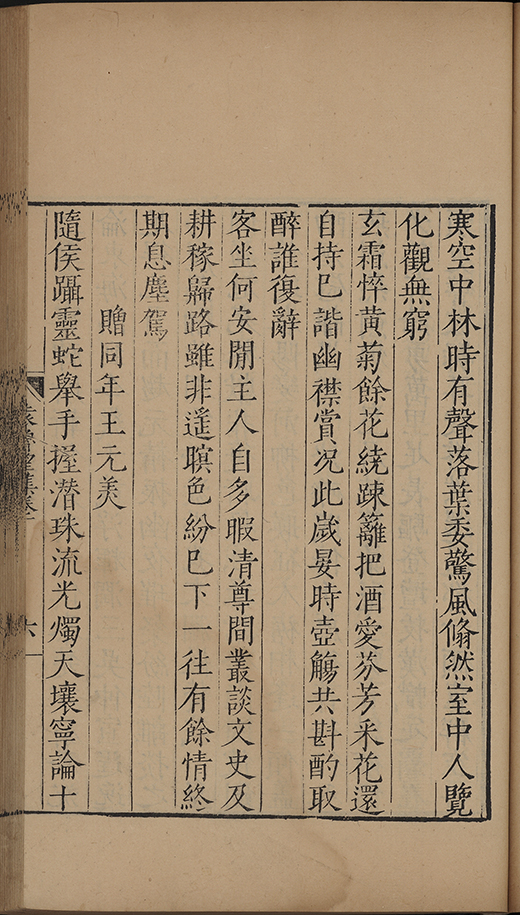 寒空中林時有聲落葉委驚風翛然室中人覽
化觀無窮
玄霜悴黃菊餘花繞踈籬把酒愛芬芳采花還
自持已諧幽襟賞况此歲晏時壺觴共斟酌取
醉誰復辭
客坐何安閒主人自多暇清尊間叢談文史及
耕稼歸路雖非遥暝色紛已下一往有餘情終
期息塵駕
贈同年王元美
隨侯躡靈蛇舉手握潜珠流光燭天壤寧論十
六